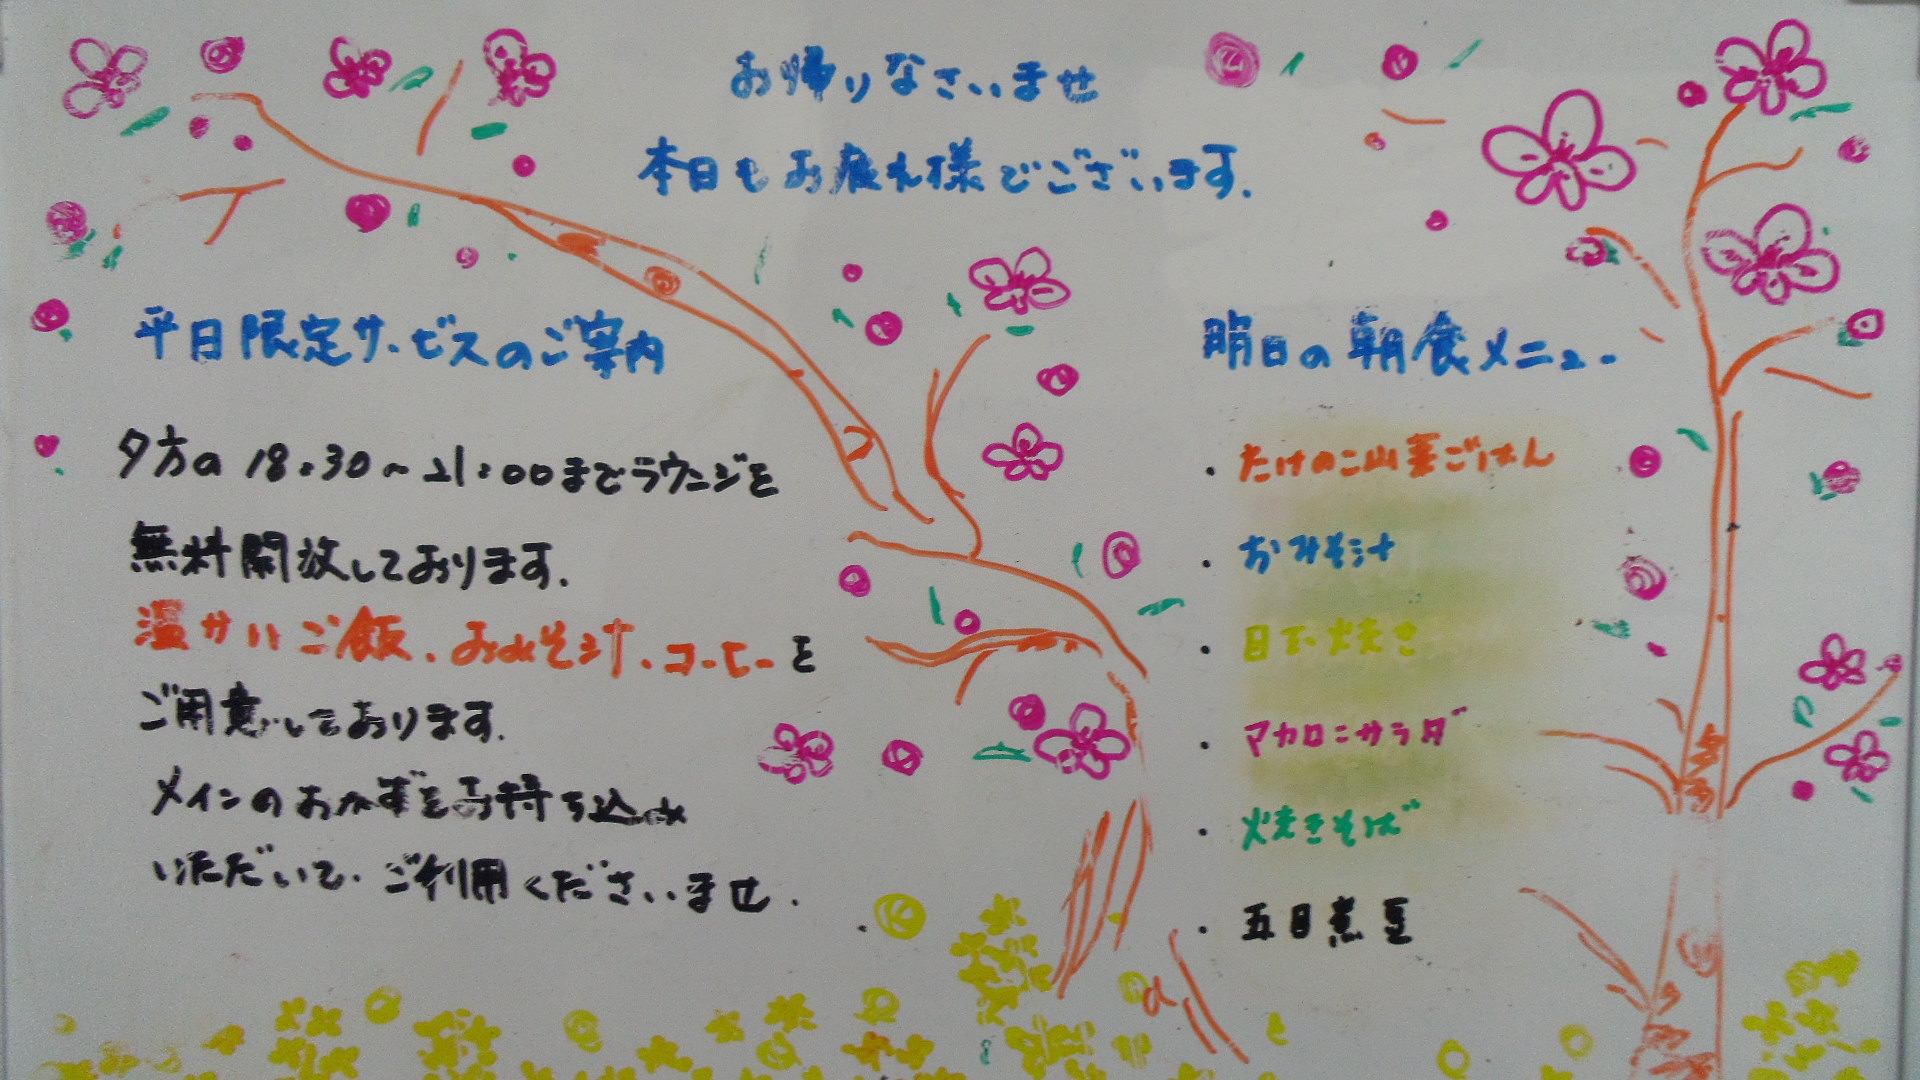 お帰りなさいませ
本日もお疲れ様でございます.
平日限定サービスのご案内
夕方の 18:30～21:00までラウンジを
無料開放しております.
温かいご飯、おみそ汁、コーヒーを
ご用意しております.
メインのおかずをお持ち込み
いただいて、ご利用くださいませ.
明日の朝食メニュー
・たけのこ山菜ごはん
・おみそ汁
・目玉焼き
・マカロニサラダ
・焼きそば
・五目煮豆